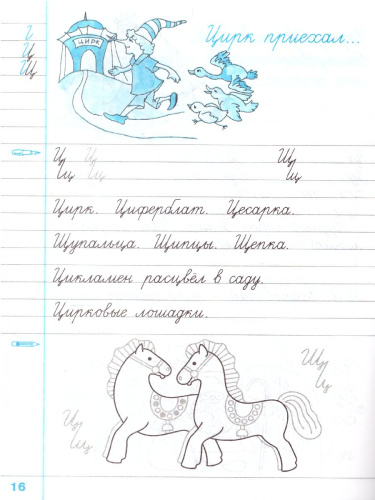 Ц
Ц
Щ
ЦИРК
Цирк приехал...
Ц Ц Щ
Щ Щ щ
Цирк. Циферблат. Цесарка.
Щупальца. Щипцы. Щепка.
Цикламен расцвёл в саду.
Цирковые лошадки.
Щ
Щ
Щ
Щ
16